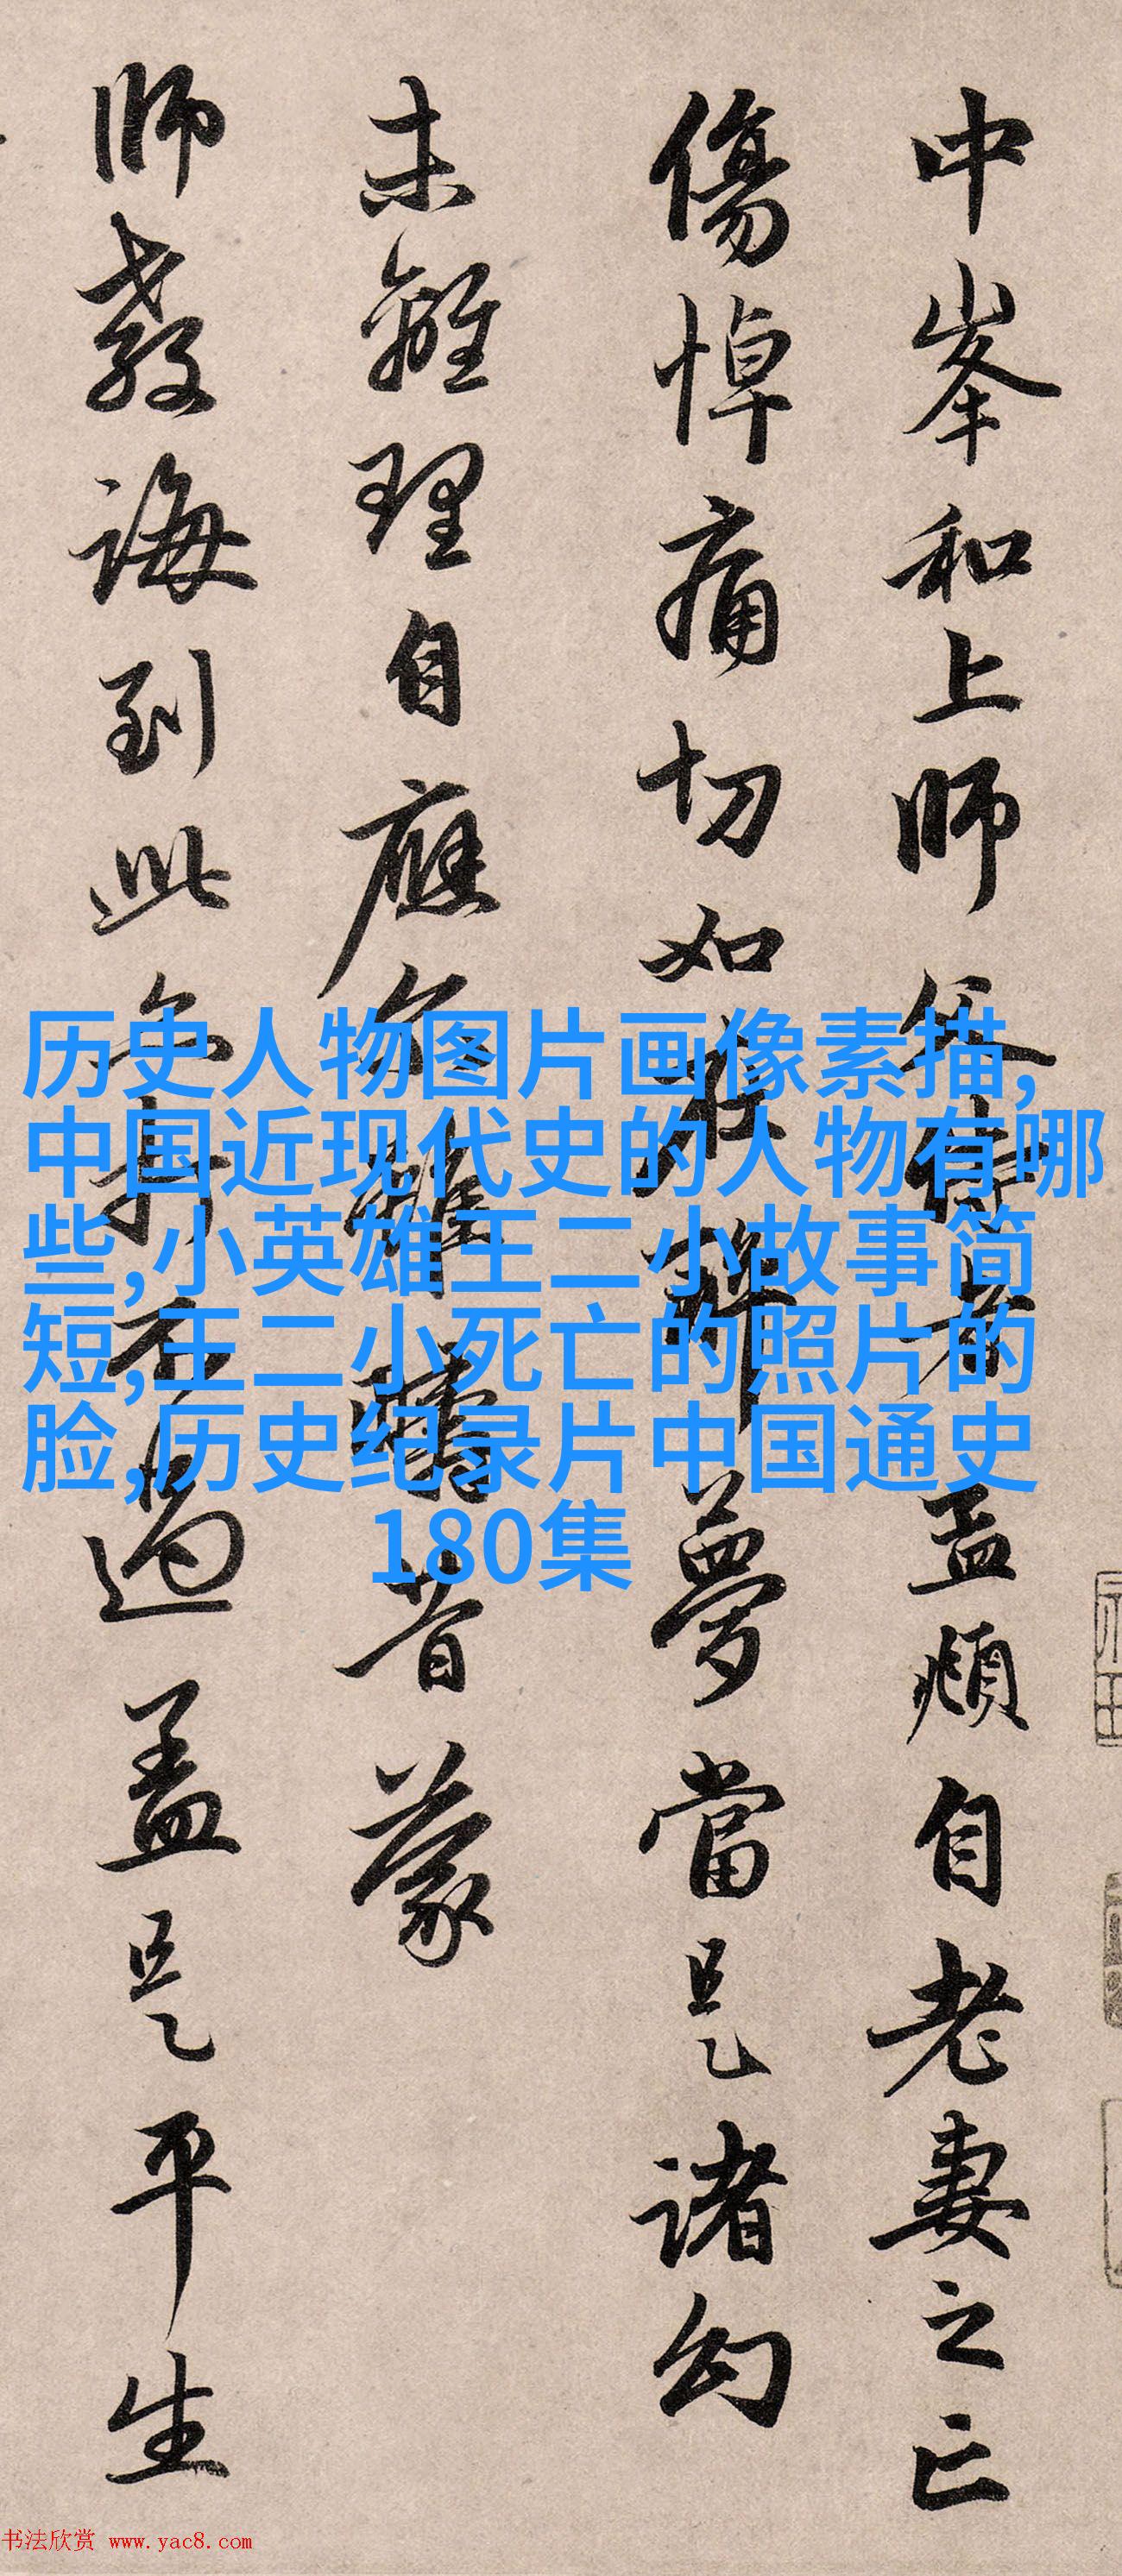 中峯和上師父侍者孟頫自老妻之亡
傷悼痛切如在醉夢當是諸幻
未離理自應尒雖疇昔蒙
師教誨到此亦打不過蓋是平生
历史人物图片画像素描,
中国近现代史的人物有哪
些,小英雄王二小故事简
短,王二小死亡的照片的
脸,历史纪录片中国通史
180集
书法欣赏 www.yac8.com